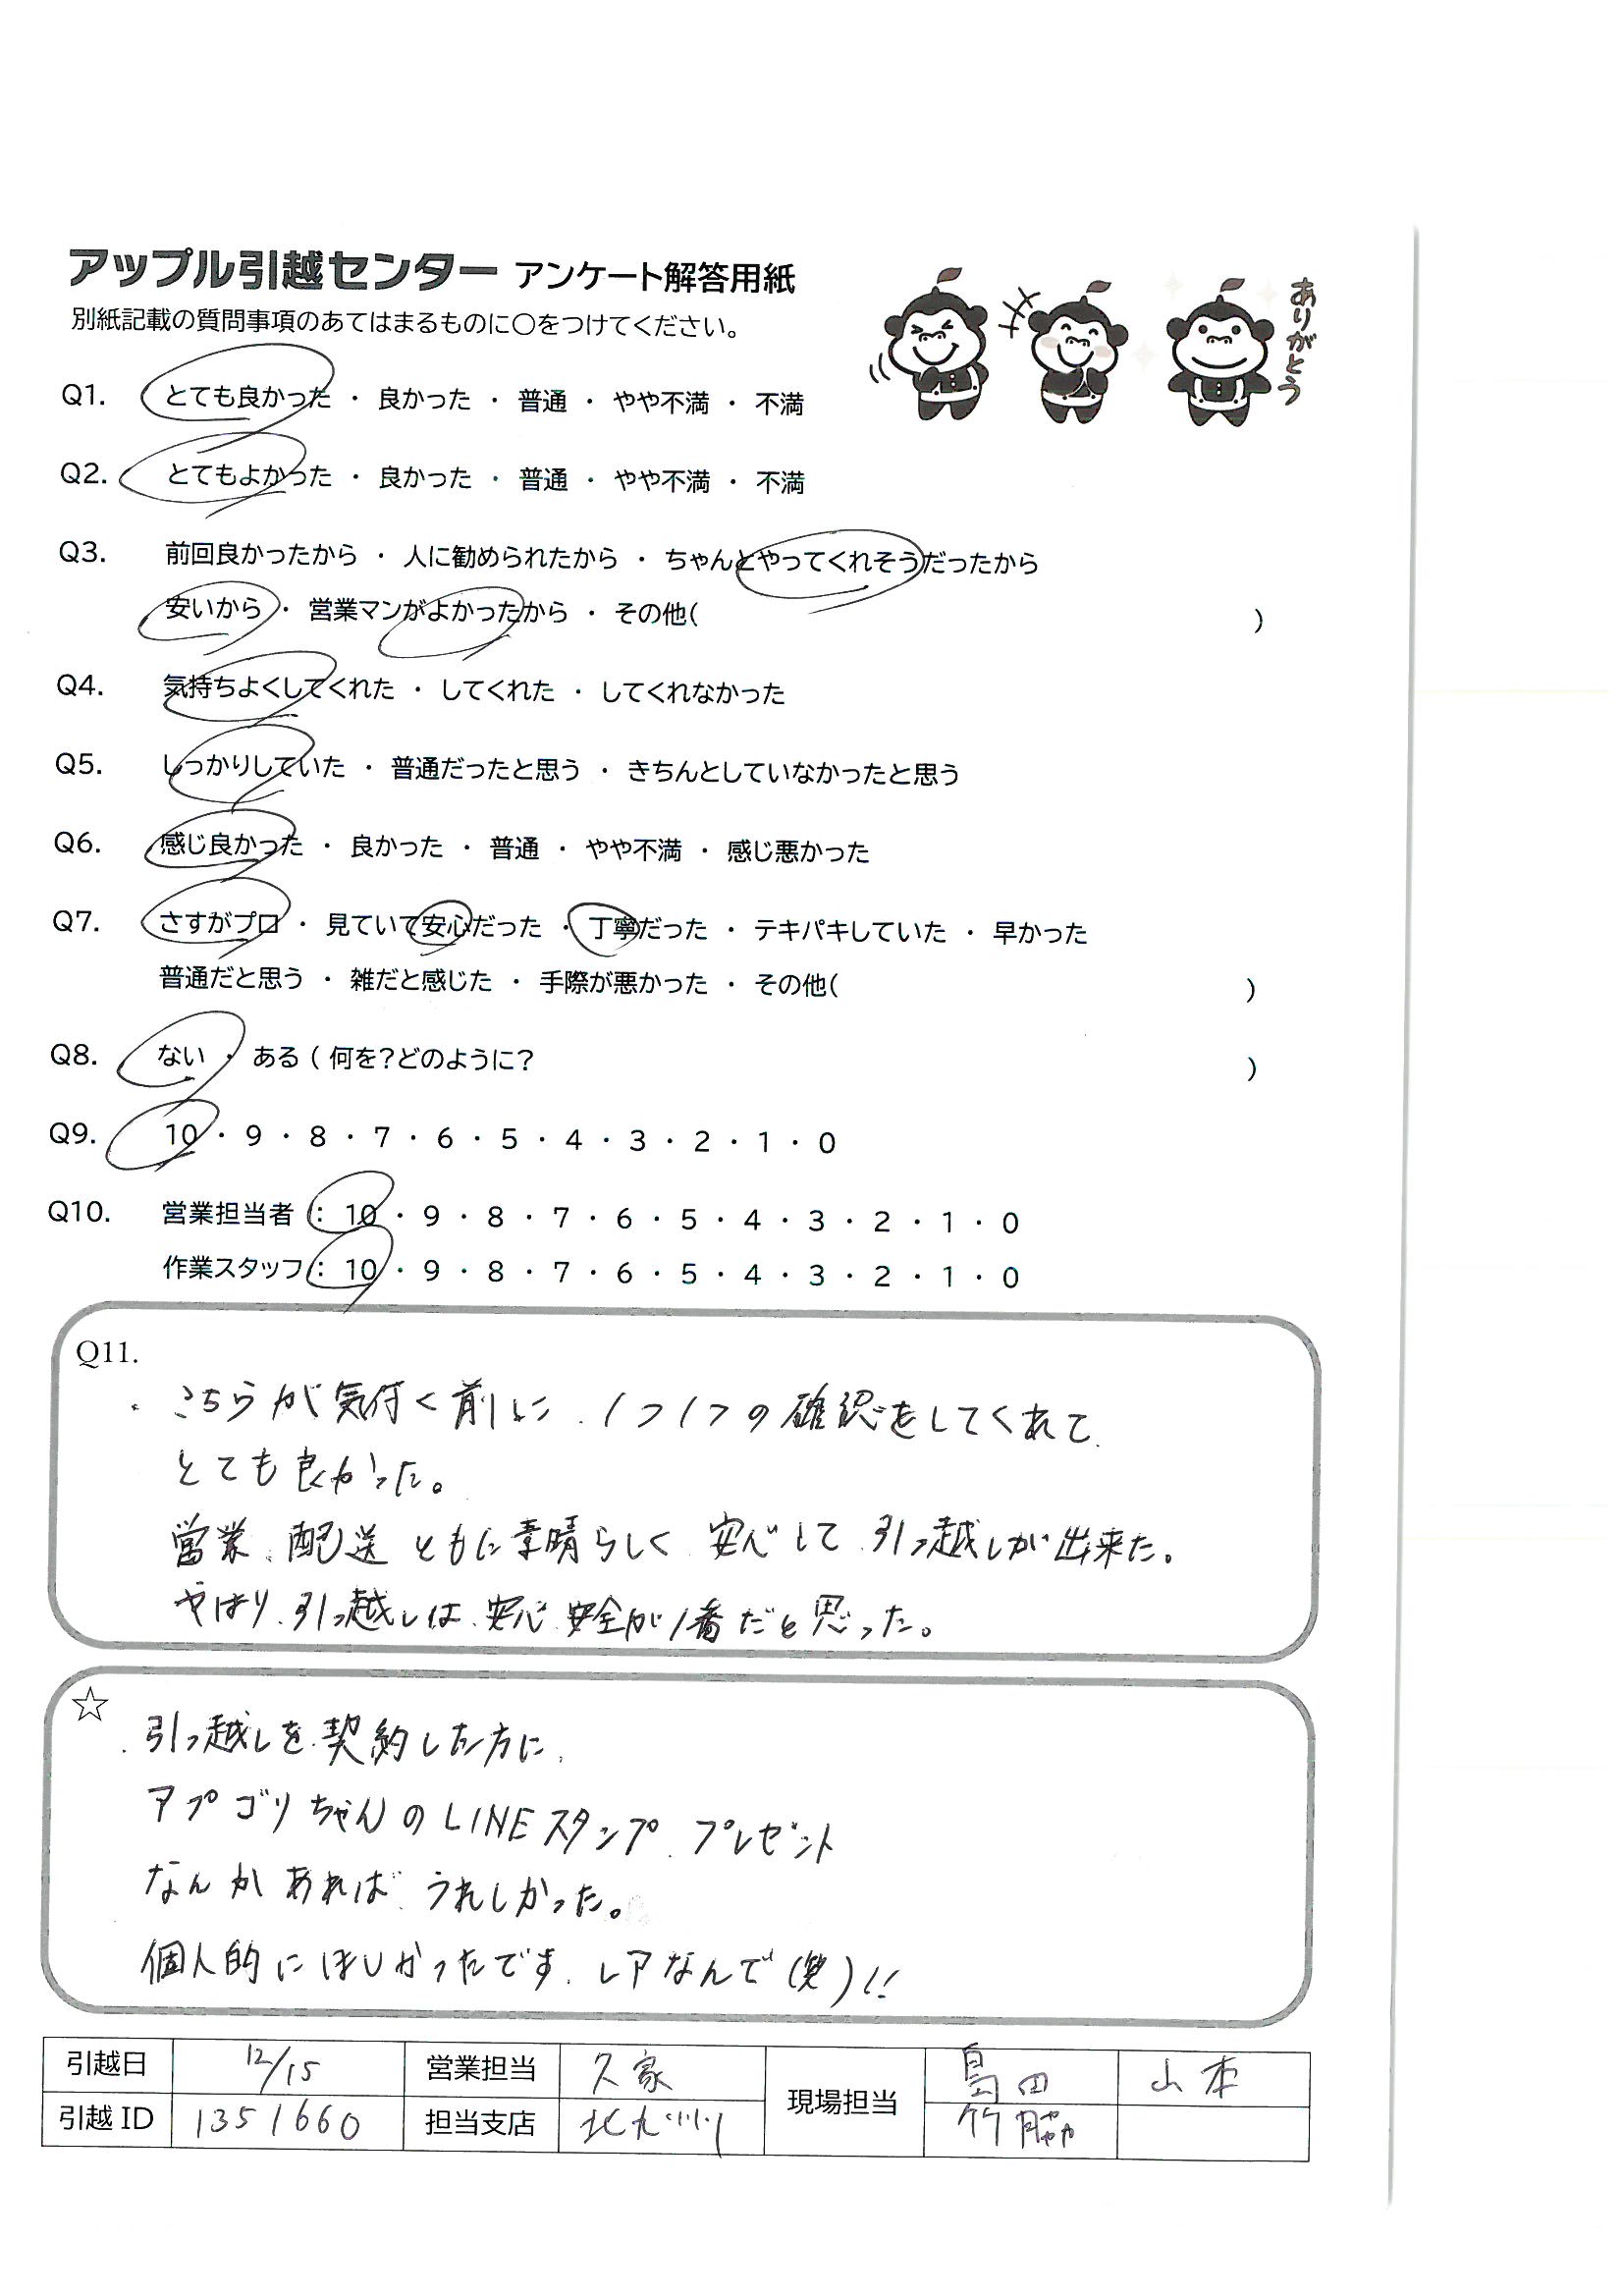 アップル引越センター アンケート解答用紙
別紙記載の質問事項のあてはまるものに〇をつけてください。
ありがとう
Q1. とても良かった ・ 良かった ・ 普通 ・ やや不満 ・ 不満
Q2. とてもよかった ・ 良かった ・ 普通 ・ やや不満 ・ 不満
Q3. 前回良かったから ・ 人に勧められたから ・ ちゃんとやってくれそうだったから
安いから ・ 営業マンがよかったから ・ その他( )
Q4. 気持ちよくしてくれた ・ してくれた ・ してくれなかった
Q5. しっかりしていた ・ 普通だったと思う ・ きちんとしていなかったと思う
Q6. 感じ良かった ・ 良かった ・ 普通 ・ やや不満 ・ 感じ悪かった
Q7. さすがプロ ・ 見ていて安心だった ・ 丁寧だった ・ テキパキしていた ・ 早かった
普通だと思う ・ 雑だと感じた ・ 手際が悪かった ・ その他( )
Q8. ない ・ ある ( 何を?どのように? )
Q9. 10 ・ 9 ・ 8 ・ 7 ・ 6 ・ 5 ・ 4 ・ 3 ・ 2 ・ 1 ・ 0
Q10. 営業担当者 : 10 ・ 9 ・ 8 ・ 7 ・ 6 ・ 5 ・ 4 ・ 3 ・ 2 ・ 1 ・ 0
作業スタッフ : 10 ・ 9 ・ 8 ・ 7 ・ 6 ・ 5 ・ 4 ・ 3 ・ 2 ・ 1 ・ 0
Q11.
・こちらが気付く前に、1つ1つの確認をしてくれて
とても良かった。
営業、配送ともに素晴らしく安心して引っ越しが出来た。
やはり、引っ越しは、安心、安全が1番だと思った。
☆
・引っ越しを契約した方に、
アプゴリちゃんのLINEスタンププレゼント
なんかあればうれしかった。
個人的にほしかったです、レアなんで(笑)!!
引越日 12/15 営業担当 久家 現場担当 島田 山本
引越 ID 1351660 担当支店 北九州 竹脇